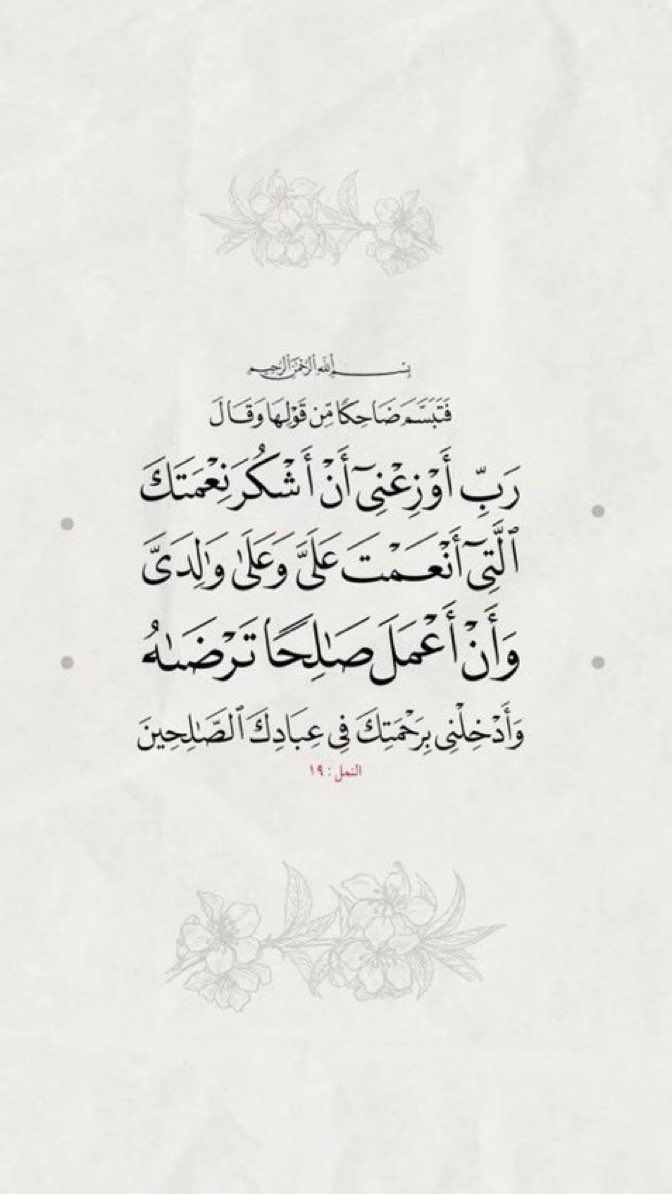 بِسْمِ ٱللَّهِ ٱلرَّحْمَٰنِ ٱلرَّحِيمِ
فَتَبَسَّمَ ضَاحِكًا مِّن قَوْلِهَا وَقَالَ
رَبِّ أَوْزِعْنِىٓ أَنْ أَشْكُرَ نِعْمَتَكَ
ٱلَّتِىٓ أَنْعَمْتَ عَلَىَّ وَعَلَىٰ وَٰلِدَىَّ
وَأَنْ أَعْمَلَ صَٰلِحًا تَرْضَىٰهُ
وَأَدْخِلْنِى بِرَحْمَتِكَ فِى عِبَادِكَ ٱلصَّٰلِحِينَ
النمل : ١٩